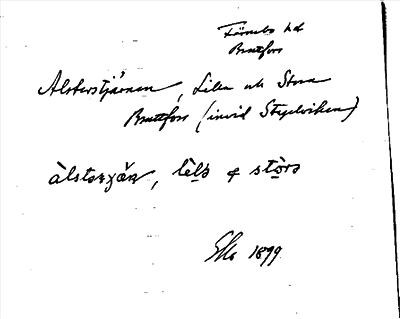 Färnebo hd
Brattfors
Alsterstjärnen, Lilla och Stora
Brattfors (invid Stegelviken)
àlstərxä̀n, lèlə & stòrə
1899